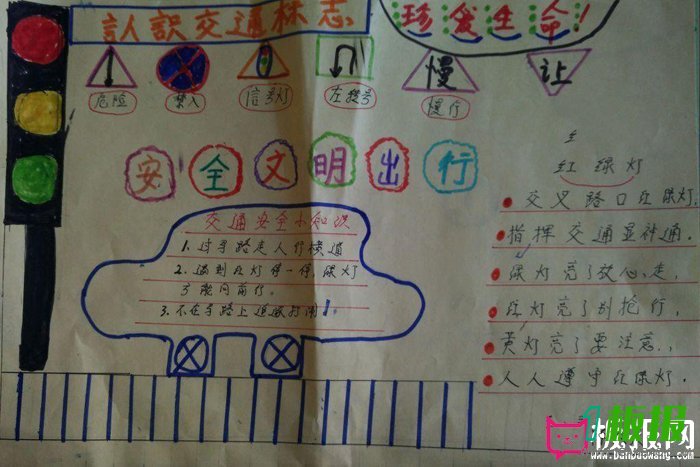 认识交通标志
珍爱生命!
慢
让
危险
禁入
信号灯
慢行
安全文明出行
红绿灯
交叉路口红绿灯,
指挥交通显神通。
绿灯亮了放心走,
红灯亮了别抢行,
黄灯亮了要注意,
人人遵守红绿灯.
交通安全小知识
1.过马路走人行横道
2.遇到红灯停一停,绿灯
了敢向前行。
3.不在马路上追逐打闹!
板报
板报网
www.banbaowang.com